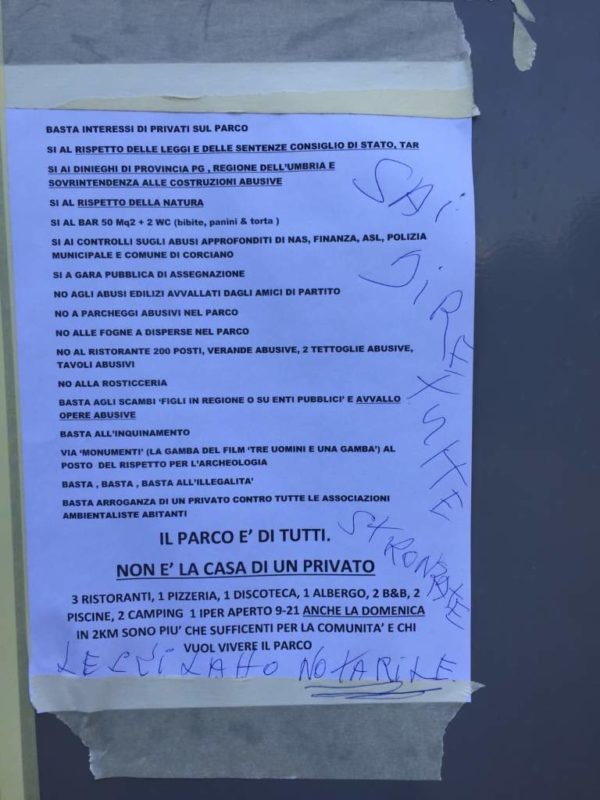 BASTA INTERESSI DI PRIVATI SUL PARCO
SI AL RISPETTO DELLE LEGGI E DELLE SENTENZE CONSIGLIO DI STATO, TAR
SI AI DINIEGHI DI PROVINCIA PG , REGIONE DELL'UMBRIA E
SOVRINTENDENZA ALLE COSTRUZIONI ABUSIVE
SI AL RISPETTO DELLA NATURA
SI AL BAR 50 Mq2 + 2 WC (bibite, panini & torta )
SI AI CONTROLLI SUGLI ABUSI APPROFONDITI DI NAS, FINANZA, ASL, POLIZIA
MUNICIPALE E COMUNE DI CORCIANO
SI A GARA PUBBLICA DI ASSEGNAZIONE
NO AGLI ABUSI EDILIZI AVVALLATI DAGLI AMICI DI PARTITO
NO A PARCHEGGI ABUSIVI NEL PARCO
NO ALLE FOGNE A DISPERSE NEL PARCO
NO AL RISTORANTE 200 POSTI, VERANDE ABUSIVE, 2 TETTOGLIE ABUSIVE,
TAVOLI ABUSIVI
NO ALLA ROSTICCERIA
BASTA AGLI SCAMBI 'FIGLI IN REGIONE O SU ENTI PUBBLICI' E AVVALLO
OPERE ABUSIVE
BASTA ALL'INQUINAMENTO
VIA 'MONUMENTI' (LA GAMBA DEL FILM 'TRE UOMINI E UNA GAMBA') AL
POSTO DEL RISPETTO PER L'ARCHEOLOGIA
BASTA , BASTA , BASTA ALL'ILLEGALITA'
BASTA ARROGANZA DI UN PRIVATO CONTRO TUTTE LE ASSOCIAZIONI
AMBIENTALISTE ABITANTI
IL PARCO E' DI TUTTI.
NON E' LA CASA DI UN PRIVATO
3 RISTORANTI, 1 PIZZERIA, 1 DISCOTECA, 1 ALBERGO, 2 B&B, 2
PISCINE, 2 CAMPING 1 IPER APERTO 9-21 ANCHE LA DOMENICA
IN 2KM SONO PIU' CHE SUFFICENTI PER LA COMUNITA' E CHI
VUOL VIVERE IL PARCO
SAI
DIRE
STRONZATE
LEGGI LATTO NOTARILE